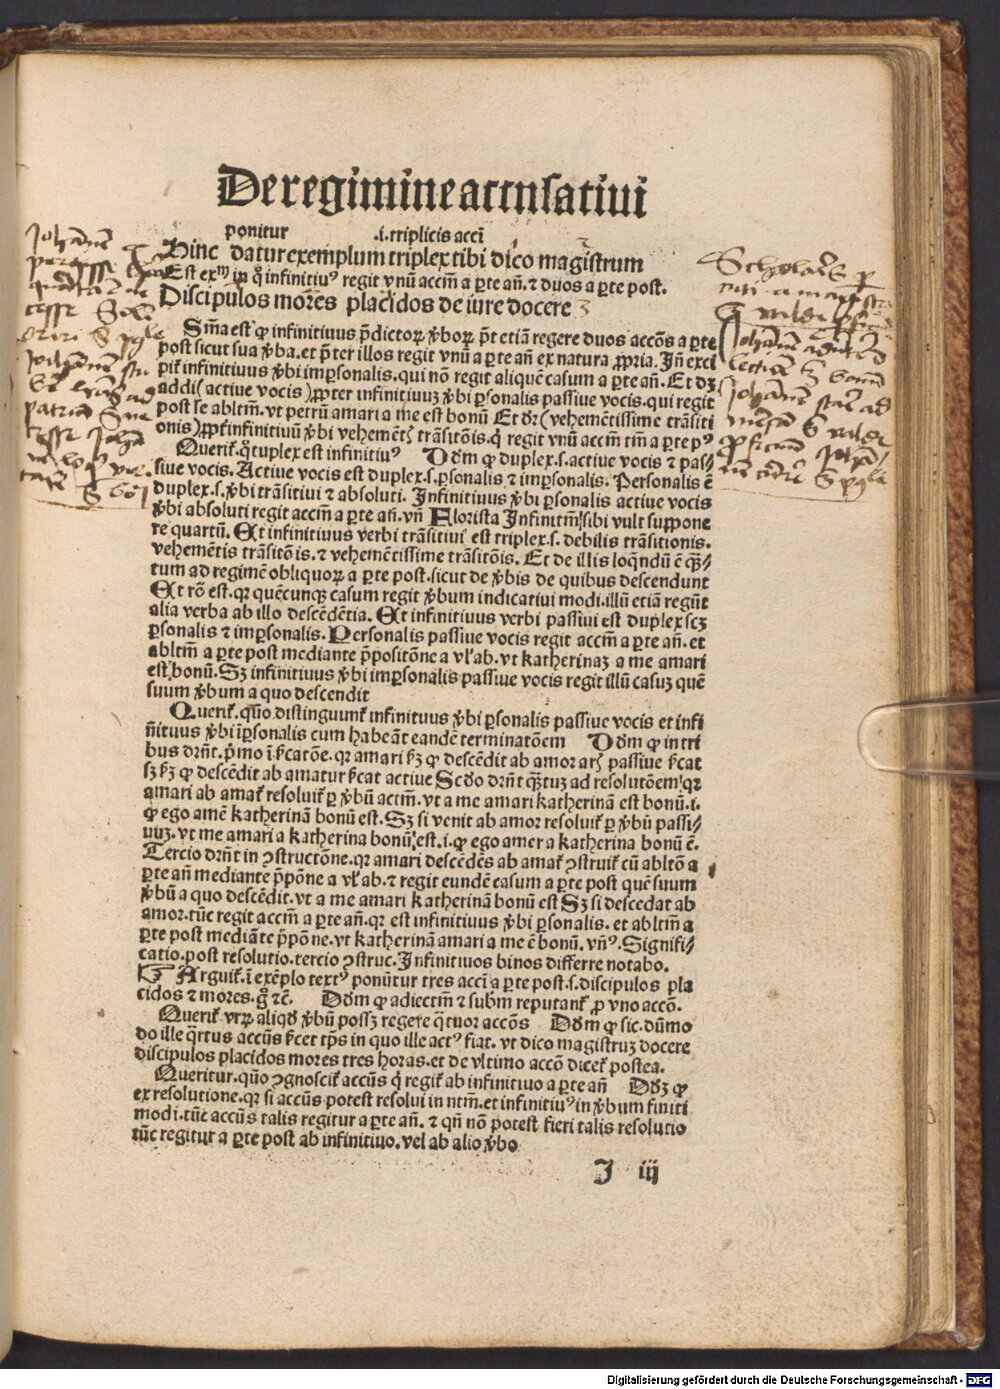 De regimine accusatiui
ponitur .i. triplicis acc̄i
Hinc datur exemplum triplex tibi dico magistrum
Est exᵐ in q̊ infinitiuꝰ regit vnū accm̄ a ꝑte an̄. ⁊ duos a ꝑte post.
Discipulos mores placidos de iure docere
Sm̄a est ꝙ infinitiuus p̄dictoꝝ v̄boꝝ pn̄t etiā regere duos accōs a ꝑte
post sicut sua v̄ba. et p̄ter illos regit vnū a ꝑte an̄ ex natura ꝓpria. In̄ exci
pit̄ infinitiuus v̄bi impersonalis. qui nō regit aliquē casum a ꝑte an̄. Et dꝫ
addi (actiue vocis) ꝓpter infinitiuuꝫ v̄bi ꝑsonalis passiue vocis. qui regit
post se abltm̄. vt petrū amari a me est bonū Et dr̄ (vehemētissime trāsiti
onis) ꝓpt̄ infinitiuū v̄bi vehemētꝭ trāsitōis. q̇ regit vnū accm̄ tm̄ a ꝑte pꝰ
Querit̄. q̊tuplex est infinitiuꝰ Ddm ꝙ duplex .s. actiue vocis ⁊ pas⸗
siue vocis. Actiue vocis est duplex .s. ꝑsonalis ⁊ imꝑsonalis. Personalis ē
duplex .s. v̄bi trāsitiui ⁊ absoluti. Infinitiuus v̄bi ꝑsonalis actiue vocis
v̄bi absoluti regit accm̄ a ꝑte an̄. vn̄ Florista Infinitm̄ sibi vult suppone
re quartū. Et infinitiuus verbi trāsitiui est triplex .s. debilis trāsitionis.
vehemētis trāsitōis. ⁊ vehemētissime trāsitōis. Et de illis loq̄ndū ē q̄⸗
tum ad regimē obliquoꝝ a ꝑte post. sicut de v̄bis de quibus descendunt
Et rō est. qꝛ quēcunqꝫ casum regit v̄bum indicatiui modi. illū etiā regūt
alia verba ab illo descēdētia. Et infinitiuus verbi passiui est duplex scꝫ
ꝑsonalis ⁊ imꝑsonalis. Personalis passiue vocis regit accm̄ a ꝑte an̄. et
abltm̄ a ꝑte post mediante p̄positōne a vl̓ ab. vt katherinaꝫ a me amari
est bonū. Sꝫ infinitiuus v̄bi imꝑsonalis passiue vocis regit illū casuꝫ quē
suum v̄bum a quo descendit
Querit̄. quō distinguunt̄ infinituus v̄bi ꝑsonalis passiue vocis et infi
nituus v̄bi īꝑsonalis cum habeāt eandē terminatōem Ddm ꝙ in tri
bus drn̄t. p̄mo ī s̄catōe. qꝛ amari s̄ꝫ ꝙ descēdit ab amor arꝭ passiue s̄cat
sꝫ s̄ꝫ ꝙ descēdit ab amatur s̄cat actiue Scdo drn̄t q̄tuꝫ ad resolutōem qꝛ
amari ab amat̄ resoluit̄ ꝑ v̄bū actm̄. vt a me amari katherinā est bonū .i.
ꝙ ego amē katherinā bonū est. Sꝫ si venit ab amor resoluit̄ ꝑ v̄bū passi⸗
uuꝫ. vt me amari a katherina bonū est .i. ꝙ ego amer a katherina bonū ē.
Tercio drn̄t in ꝯstructōne. qꝛ amari descēdēs ab amat̄ ꝯstruit̄ cū abltō a
ꝑte an̄ mediante p̄pōne a vl̓ ab. ⁊ regit eundē casum a ꝑte post quē suum
v̄bū a quo descēdit. vt a me amari katherinā bonū est Sꝫ si descedat ab
amor. tūc regit accm̄ a ꝑte an̄. qꝛ est infinitiuus v̄bi ꝑsonalis. et abltm̄ a
ꝑte post mediāte p̄pōne. vt katherinā amari a me ē bonū. vn̄ꝰ. Signifi⸗
catio. post resolutio. tercio ꝯstruc. Infinitiuos binos differre notabo.
Arguit̄. ī exēplo textꝰ ponūtur tres acc̄i a ꝑte post .s. discipulos pla
cidos ⁊ mores. g̊ ⁊c̄. Ddm ꝙ adiectm̄ ⁊ subm̄ reputant̄ ꝓ vno accō.
Querit̄ vtꝝ aliqd̓ v̄bū possꝫ regere q̄tuor accōs Ddm ꝙ sic. dūmo
do ille q̄rtus accūs s̄cet tp̄s in quo ille actꝰ fiat. vt dico magistruꝫ docere
discipulos placidos mores tres horas. et de vltimo accō dicet̄ postea.
Queritur. quō ꝯgnoscit̄ accūs q̇ regit̄ ab infinitiuo a ꝑte an̄ Ddꝫ ꝙ
ex resolutione. qꝛ si accūs potest resolui in ntm̄. et infinitiuꝰ in v̄bum finiti
modi. tūc accūs talis regitur a ꝑte an̄. ⁊ qn̄ nō potest fieri talis resolutio
tūc regitur a ꝑte post ab infinitiuo. vel ab alio v̄bo
I iij
Digitalisierung gefördert durch die Deutsche Forschungsgemeinschaft - DFG